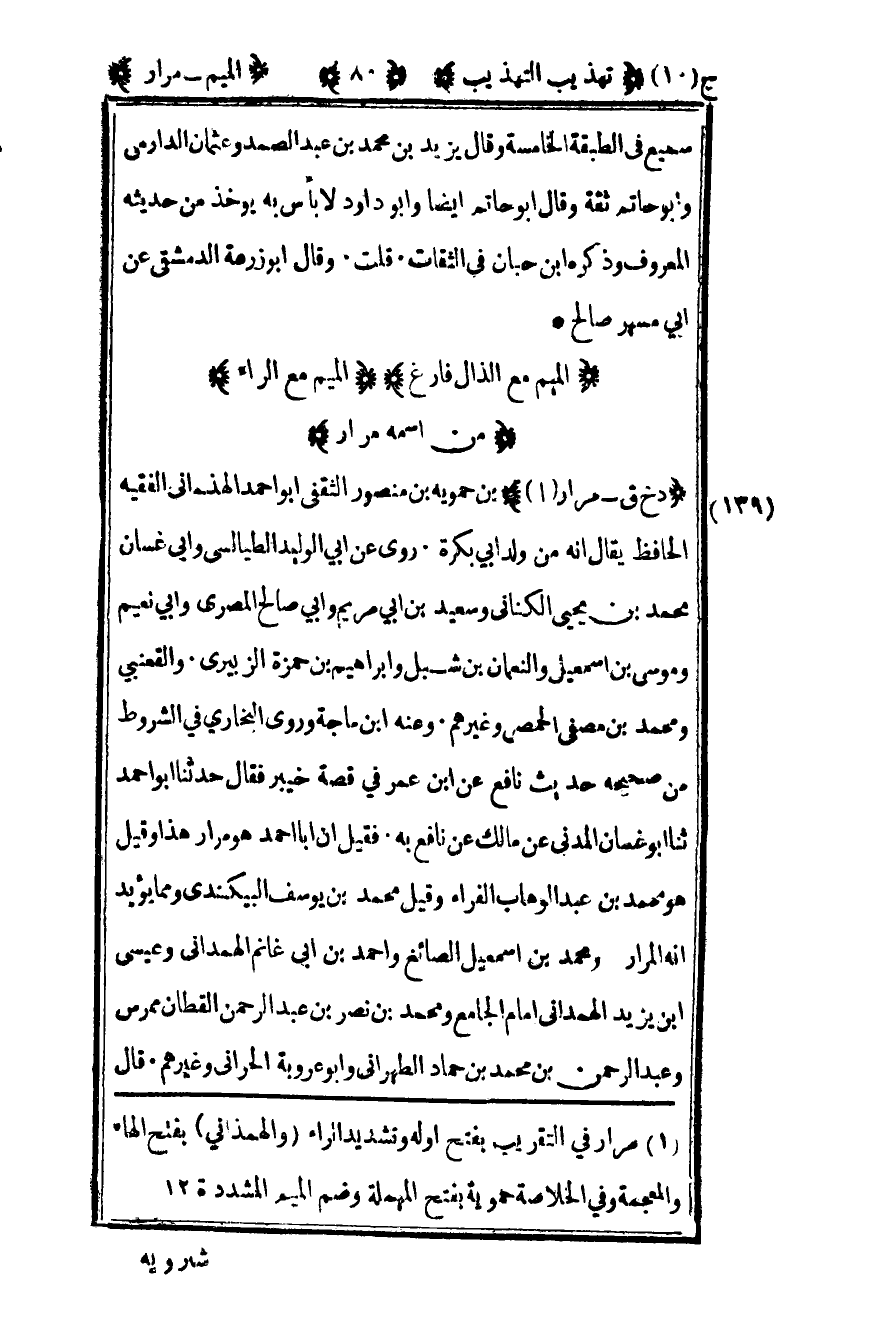 ج(١٠) ﴿ تهذيب التهذيب ﴾ ﴿ ٨٠ ﴾ ﴿ الميم ـ مرار ﴾
سميع فى الطبقة الخامسة وقال يزيد بن محمد بن عبد الصمد وعثمان الدارمى
وابو حاتم ثقة وقال ابو حاتم ايضا وابو داود لا بأس به يوخذ من حديثه
المعروف وذكره ابن حبان فى الثقات٠ قلت٠ وقال ابو زرعة الدمشقى عن
ابي مسهر صالح •
﴿ الميم مع الذال فارغ ﴾ ﴿ الميم مع الراء ﴾
﴿ من اسمه مرار ﴾
(١٣٩) ﴿ دخ ق ـ مرار (١) ﴾ بن حمويه بن منصور الثقفى ابو احمد الهذمانى الفقيه
الحافظ يقال انه من ولد ابي بكرة ٠ روى عن ابي الوليد الطيالسى وابى غسان
محمد بن يحيى الكنانى وسعيد بن ابي مريم وابي صالح المصرى وابي نعيم
وموسى بن اسمعيل والنعمان بن شبل وابراهيم بن حمزة الزبيرى٠ والقعنبي
ومحمد بن مصفى الحمصى وغيرهم٠ وعنه ابن ماجة وروى البخاري في الشروط
من صحيحه حديث نافع عن ابن عمر في قصة خيبر فقال حدثنا ابو احمد
ثنا ابو غسان المدني عن مالك عن نافع به٠ فقيل ان ابا احمد هو مرار هذا وقيل
هو محمد بن عبد الوهاب الفراء وقيل محمد بن يوسف البيكندى ومما يؤيد
انه المرار ومحمد بن اسمعيل الصائغ واحمد بن ابى غانم الهمدانى وعيسى
ابن يزيد الهمدانى امام الجامع ومحمد بن نصر بن عبد الرحمن القطان ممرس
وعبد الرحمن بن محمد بن حماد الطهرانى وابو عروبة الحرانى وغيرهم٠ قال
(١) مرار في التقريب بفتح اوله وتشديد الراء (والهمذاني) بفتح الهاء
والمعجمة وفي الخلاصة حموية بفتح المهملة وضم الميم المشددة ١٢
شيرويه